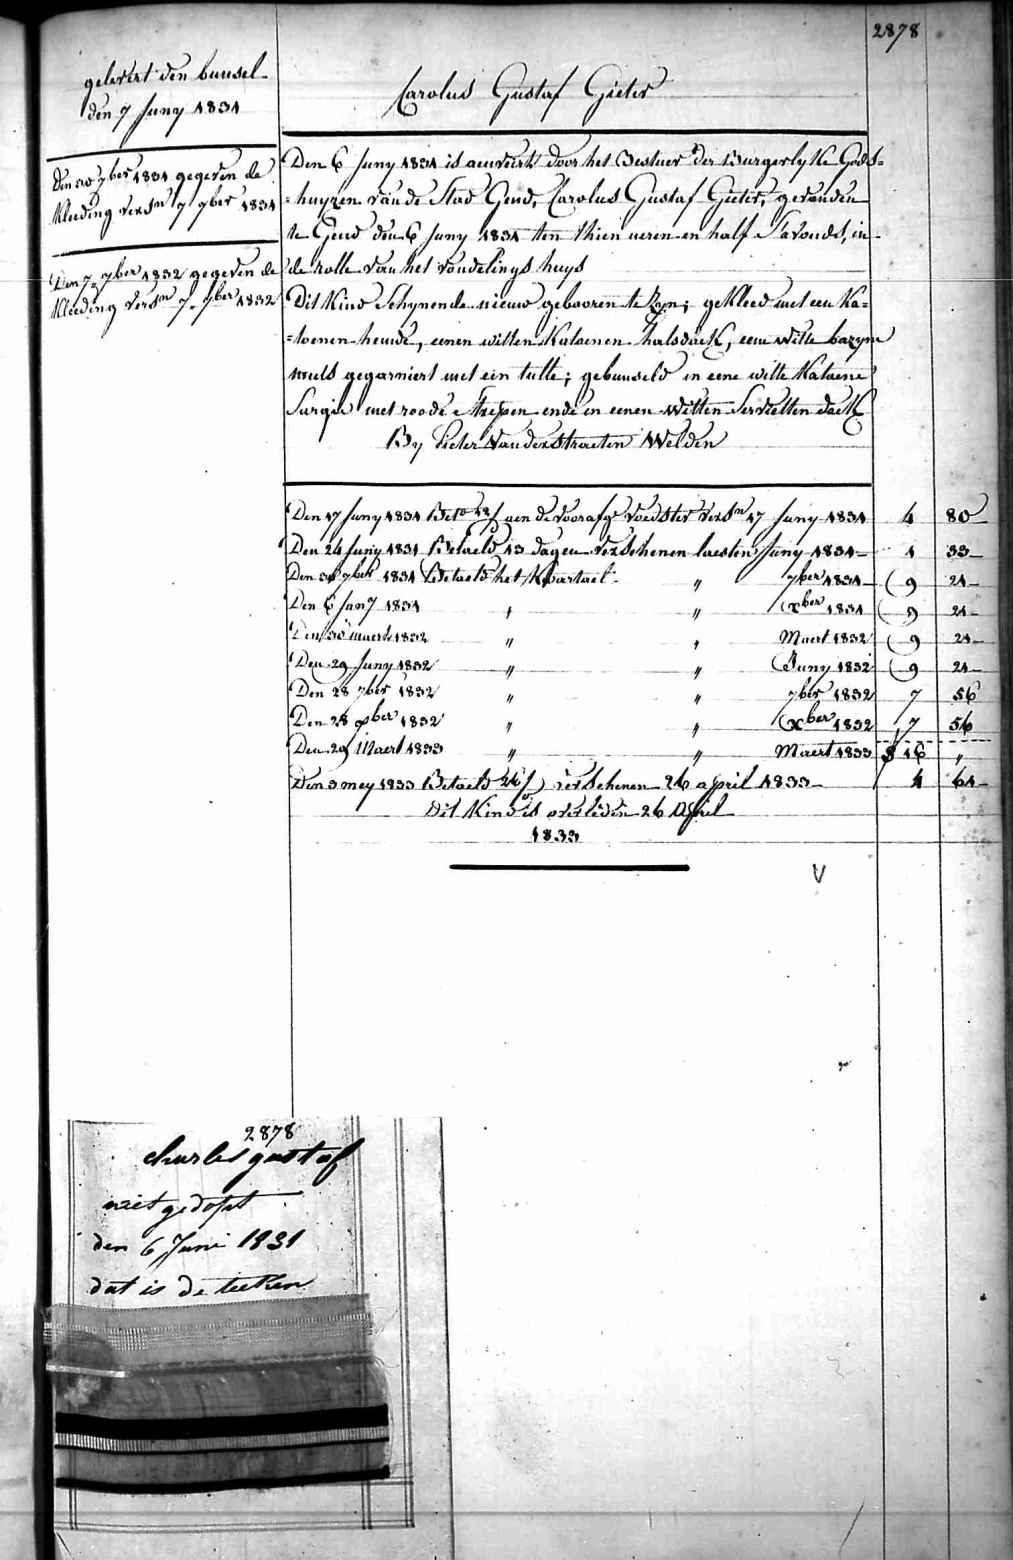 2878
gelevert den bunsel
den 7 Juny 1831
Den 30 7ber 1831 gegeven de
Kleeding versn 7 7ber 1831
Den 7 7ber 1832 gegeven de
Kleeding versn 7 7ber 1832
Carolus Gustaf Gieter
Den 6 Juny 1831 is aenveirt door het Bestuer der Burgerlyke Gods=
=huyzen van de Stad Gend, Carolus Gustaf Gieter, gevonden
te Gend den 6 Juny 1831 ten thien ueren en half s'avonds, in
de rolle van het vondelings huys
Dit Kind Schynende nieuw gebooren te Zyn; gekleed met een Ka=
=toenen hemde, eenen witten Katoenen halsdoek, eene witte bazyne
muts gegarniert met ein tulle; gebunseld in eene witte Katoene
Surgie met roode strepen ende in eenen witten Servietten doek
By Pieter Vanderstraeten Welden
Den 17 Juny 1831 aen de voorafge Voedster versn 17 Juny 1831 4 80
Den 24 Juny 1831 Betaeld 13 dagen verschenen laesten Juny 1831 1 33
Den 30 7ber 1831 Betaeld het Kwartael " 7ber 1831 9 24
Den 6 Jany 1831 " " Xber 1831 9 24
Den 30 Maert 1832 " " Maert 1832 9 24
Den 29 Juny 1832 " " Juny 1832 9 24
Den 28 7ber 1832 " " 7ber 1832 7 56
Den 28 Xber 1832 " " Xber 1832 7 56
Den 29 Maert 1833 " " Maert 1833 16 "
Den 3 mey 1833 Betaeld verschenen 26 april 1833 4 64
Dit Kind is overleden 26 April
1833
V
2878
charles gustaf
niet gedopt
den 6 Juni 1831
dat is de teeken